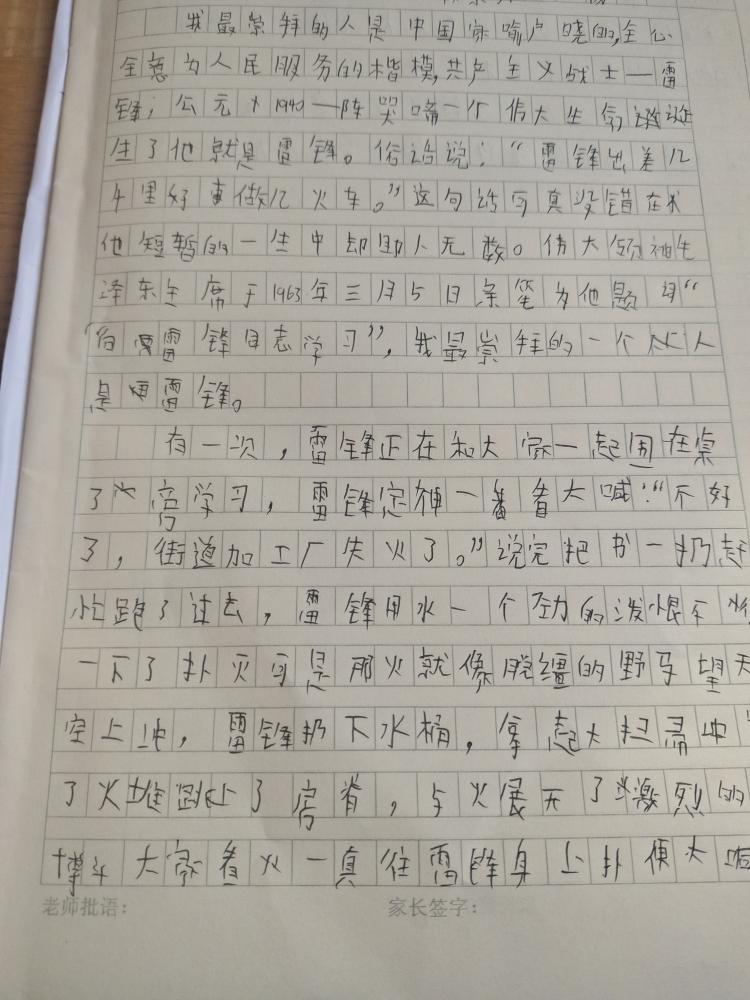 我最崇拜的人是中国家喻户晓的,全心
全意为人民服务的楷模,共产主义战士——雷
锋,公元1940一阵哭啼一个伟大生命诞
生了他就是雷锋。俗话说:“雷锋出差几
千里好事做几火车。”这句话可真没错在
他短暂的一生中却助人无数。伟大领袖毛
泽东主席于1963年三月5日亲笔为他题词“
向雷锋同志学习”,我最崇拜的一个人
是雷锋。
有一次,雷锋正在和大家一起围在桌
了旁学习,雷锋定神一看大喊:“不好
了,街道加工厂失火了。”说完把书一扔赶
忙跑了过去,雷锋用水一个劲的泼恨不
一下了扑灭可是那火就像脱缰的野马望天
空上冲,雷锋扔下水桶,拿起大扫帚冲
了火堆跳上了房脊,与火展开了激烈的
博斗大家看火一真往雷锋身上扑便大喊
老师批语:
家长签字: